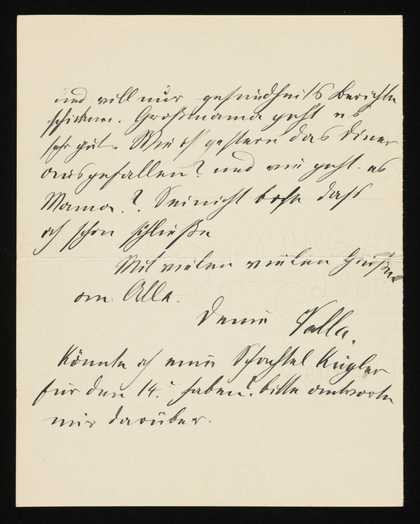 und will nur gesundheits Berichte
schicken. Großmama geht es
sehr gut. Wie ist gestern das Diner
ausgefallen? und wie geht es
Mama? Sei nicht böse dass
ich schon schließe
Mit vielen vielen Grüßen
an Alle.
Deine Valla.
Könnte ich eine Schachtel Kugler
für den 14. haben? bitte antworte
mir darüber.